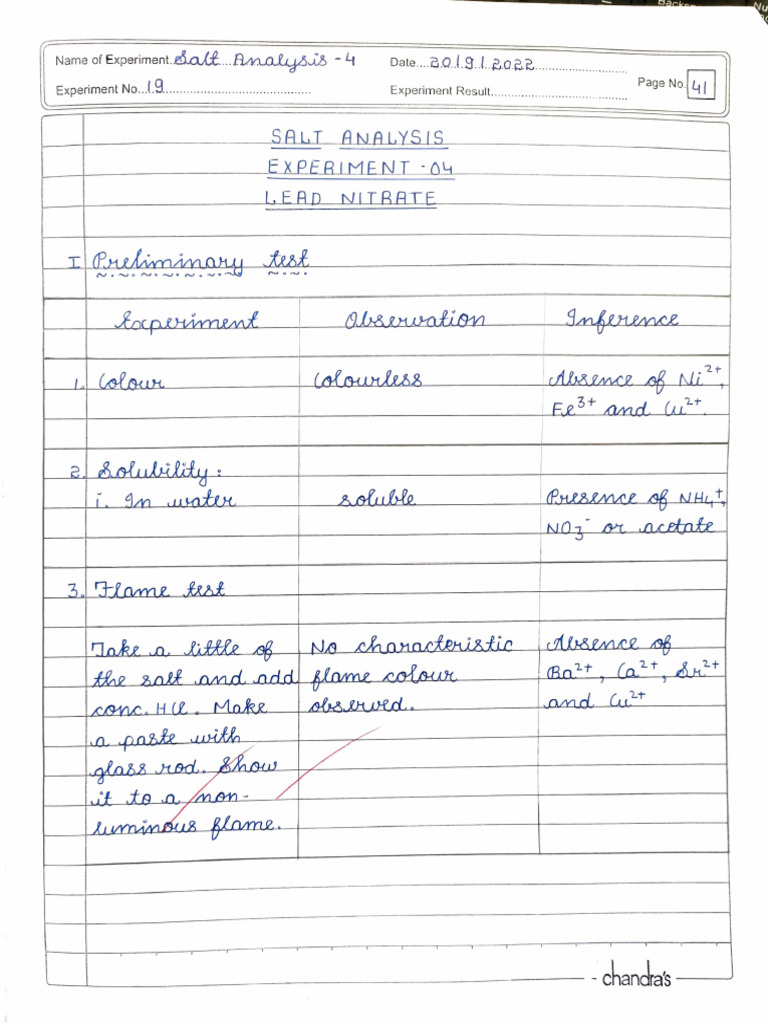 Name of Experiment Salt Analysis - 4 Date 20/9/2022
Experiment No. 19 Experiment Result Page No. 41
SALT ANALYSIS
EXPERIMENT - 04
LEAD NITRATE
I Preliminary test
Experiment Observation Inference
1. Colour Colourless Absence of Ni²⁺,
Fe³⁺ and Cu²⁺.
2. Solubility:
i. In water soluble Presence of NH₄⁺,
NO₃⁻ or acetate
3. Flame test
Take a little of No characteristic Absence of
the salt and add flame colour Ba²⁺, Ca²⁺, Sr²⁺
conc. HCl. Make observed. and Cu²⁺
a paste with
glass rod. Show
it to a non-
luminous flame.
chandra's